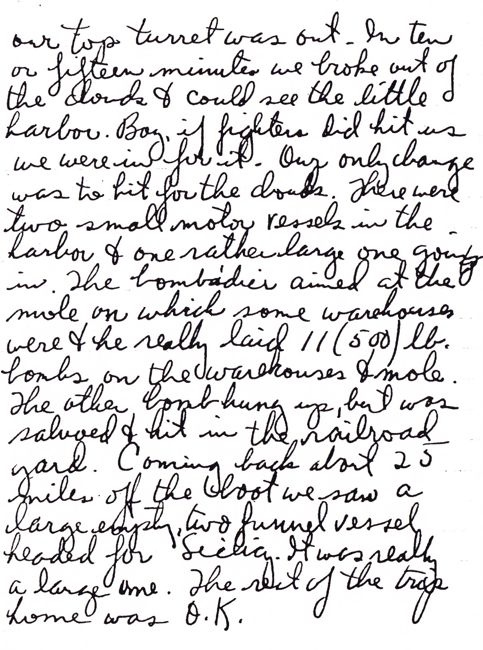 our top turret was out. In ten
or fifteen minutes we broke out of
the clouds & could see the little
harbor. Boy, if fighters did hit us
we were in for it. Our only change
was to hit for the clouds. There were
two small motor vessels in the
harbor & one rather large one going
in. The bombadier aimed at the
mole on which some warehouses
were & he really laid 11 (500) lb.
bombs on the warehouses & mole.
The other bomb hung up, but was
salvoed & hit in the railroad
yard. Coming back about 25
miles off the boot we saw a
large empty, two funnel vessel
headed for Sicily. It was really
a large one. The rest of the trip
home was O.K.